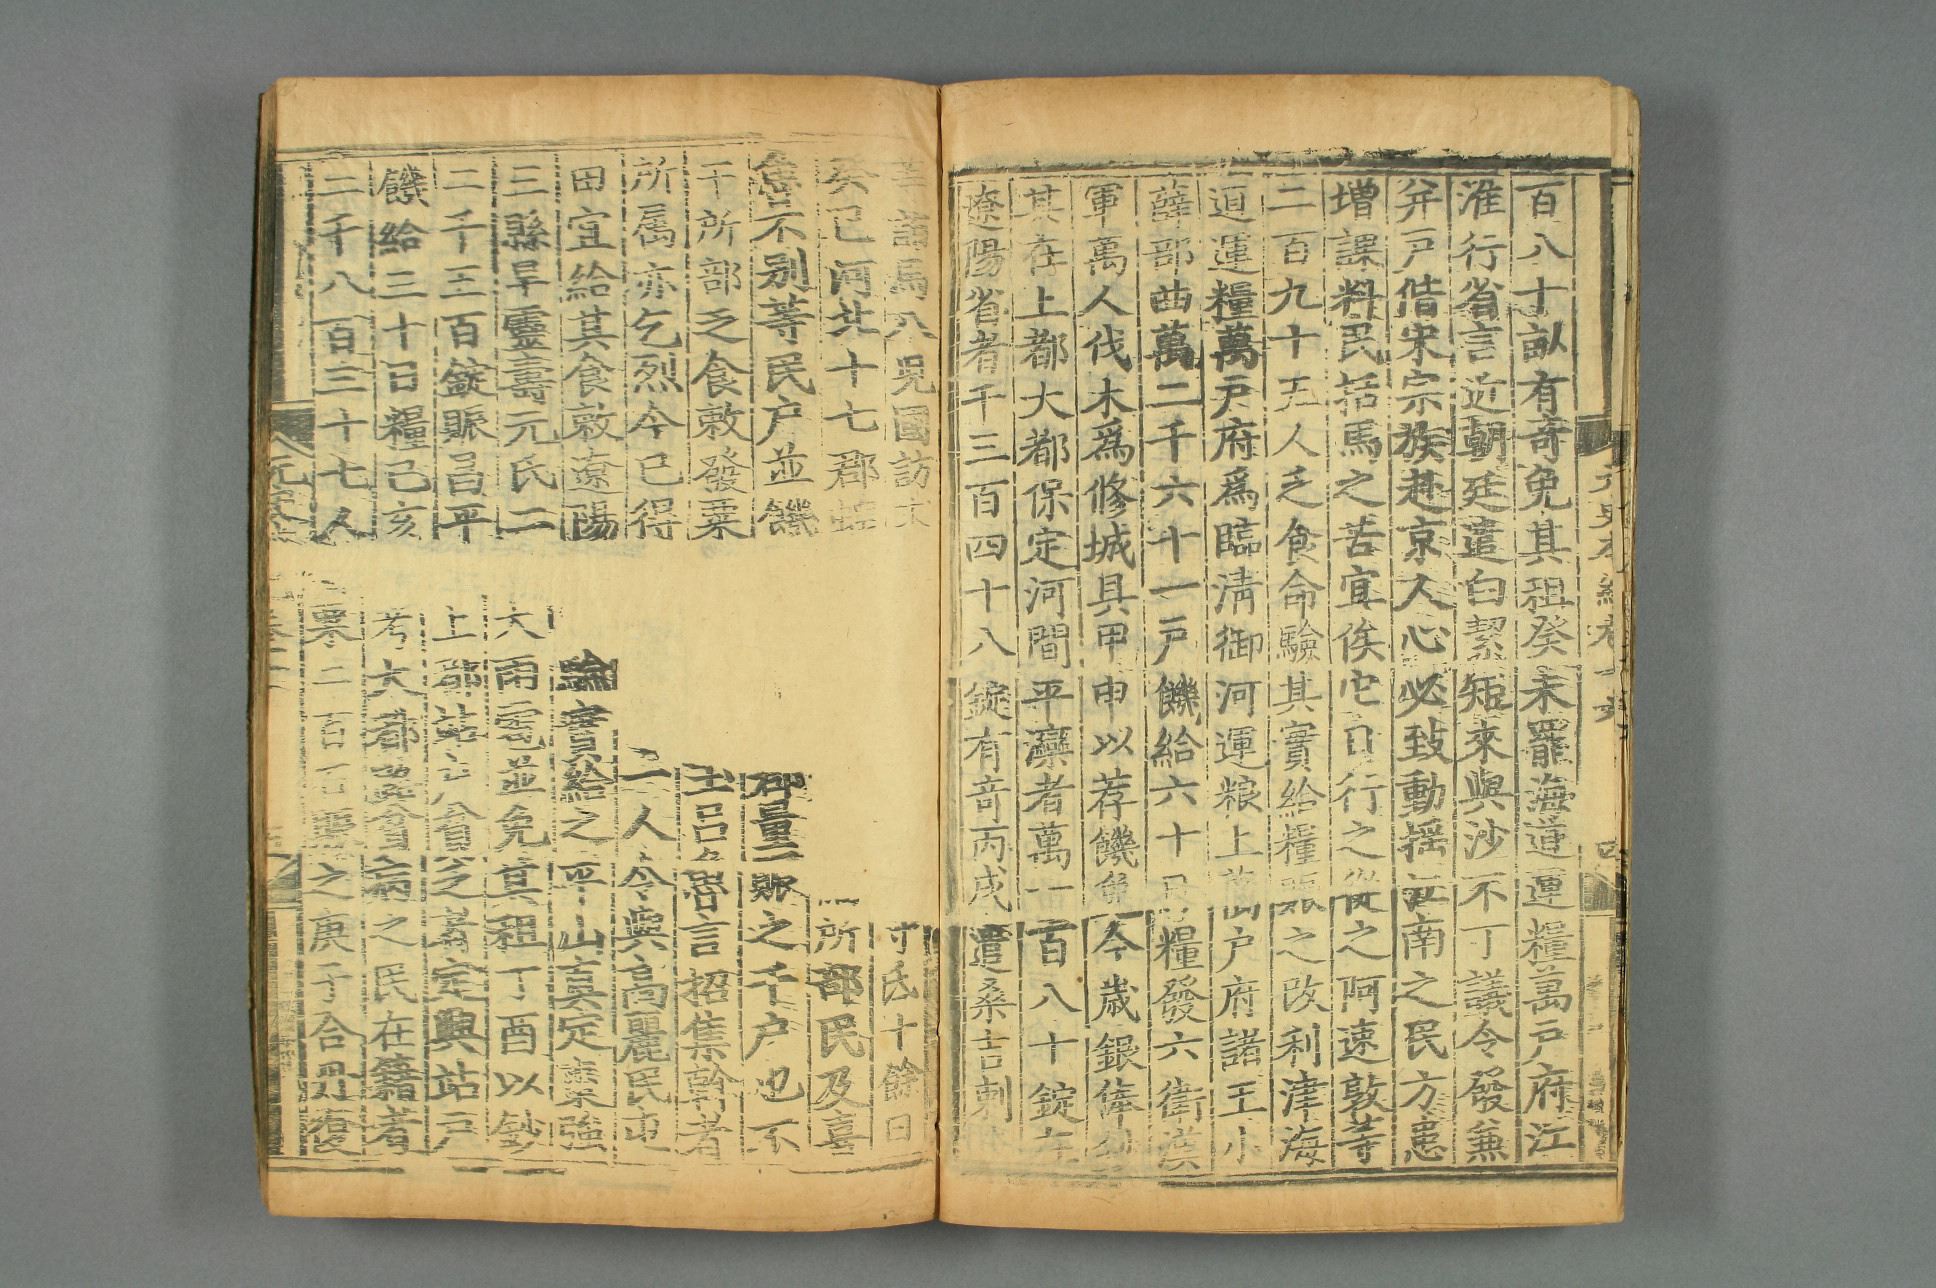 百八十畝有奇免其租癸未罷海道運糧萬戶府江
淮行省言近朝廷遣白絜矩來與沙不丁議令發兼
并戶偕宋宗族赴京人心必致動揺江南之民方患
增課料民括馬之苦宜俟它日行之從之阿速敦等
二百九十五人乏食命驗其實給糧賑之改利津海
道運糧萬戶府爲臨清御河運粮上萬戶府諸王小
薛部曲萬二千六十一戶饑給六十日糧發六衛漢
軍萬人伐木爲修城具甲申以荐饑免今歲銀俸鈔
其在上都大都保定河間平灤者萬一百八十錠在
遼陽省者千三百四十八錠有竒丙戌遣桑吉剌
罕國訪求
癸巳河北十七郡蝗
所部民及喜
魯不别等民户並饑
之千户也不
干所部乏食敕發粟
言招集斡者
所属亦乞烈今已得
人令與高麗民屯
田宜給其食敕遼陽
實給之平山真定棗強
三縣旱靈壽元氏二
大雨雹並免其租丁酉以鈔
二千三百錠賑昌平
上都站戶貧乏者定興站戶
饑給三十日糧己亥
考大都
貧病之民在籍者
二千八百三十七人
粟二百
之庚子合丹復